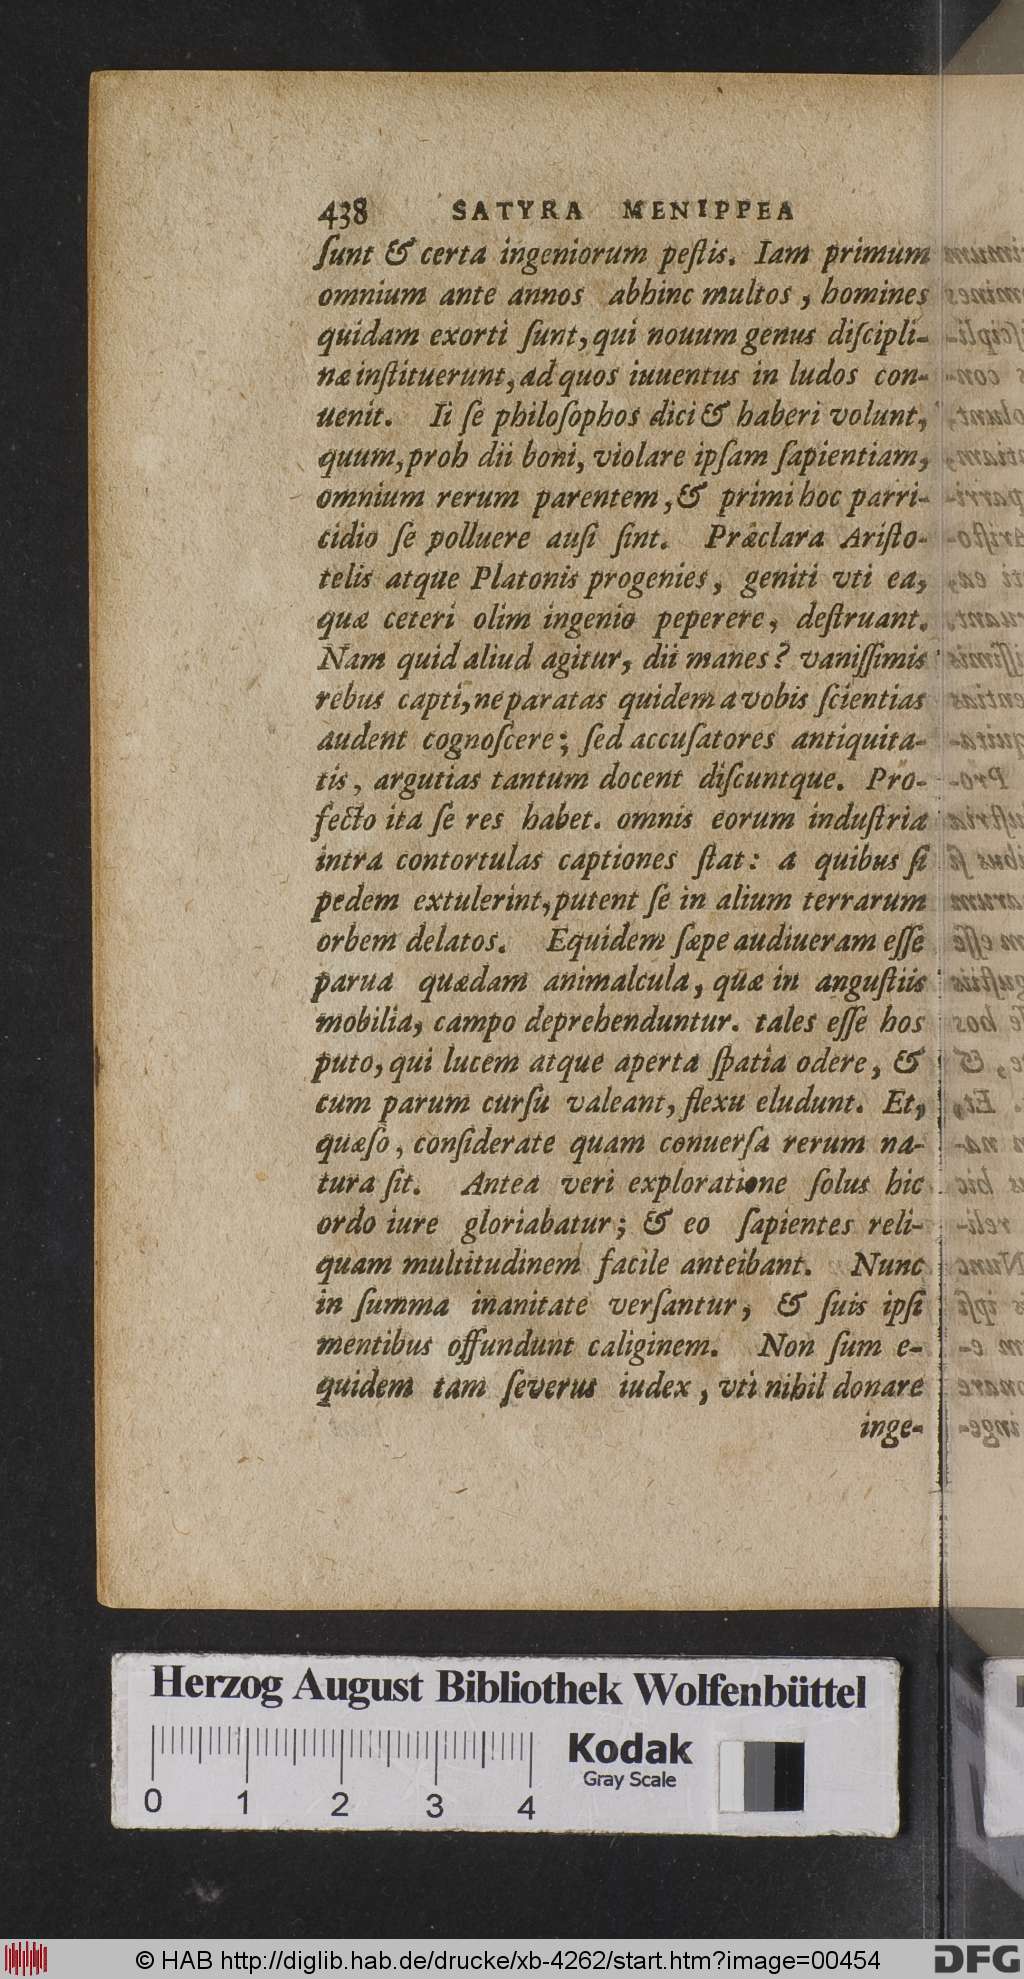 438 SATYRA MENIPPEA
ſunt & certa ingeniorum peſtis. Iam primum
omnium ante annos abhinc multos, homines
quidam exorti ſunt, qui nouum genus diſcipli-
næ inſtituerunt, ad quos iuuentus in ludos con-
uenit. Ii ſe philoſophos dici & haberi volunt,
quum, proh dii boni, violare ipſam ſapientiam,
omnium rerum parentem, & primi hoc parri-
cidio ſe polluere auſi ſint. Præclara Ariſto-
telis atque Platonis progenies, geniti vti ea,
quæ ceteri olim ingenio peperere, deſtruant.
Nam quid aliud agitur, dii manes? vaniſſimis
rebus capti, ne paratas quidem a vobis ſcientias
audent cognoſcere; ſed accuſatores antiquita-
tis, argutias tantum docent diſcuntque. Pro-
fecto ita ſe res habet. omnis eorum induſtria
intra contortulas captiones ſtat: a quibus ſi
pedem extulerint, putent ſe in alium terrarum
orbem delatos. Equidem ſæpe audiueram eſſe
parua quædam animalcula, quæ in anguſtiis
mobilia, campo deprehenduntur. tales eſſe hos
puto, qui lucem atque aperta ſpatia odere, &
cum parum curſu valeant, flexu eludunt. Et,
quæſo, conſiderate quam conuerſa rerum na-
tura ſit. Antea veri exploratione ſolus hic
ordo iure gloriabatur; & eo ſapientes reli-
quam multitudinem facile anteibant. Nunc
in ſumma inanitate verſantur, & ſuis ipſi
mentibus offundunt caliginem. Non ſum e-
quidem tam ſeverus iudex, vti nihil donare
inge-
Herzog August Bibliothek Wolfenbüttel
Kodak
Gray Scale
0 1 2 3 4
© HAB http://diglib.hab.de/drucke/xb-4262/start.htm?image=00454
DFG